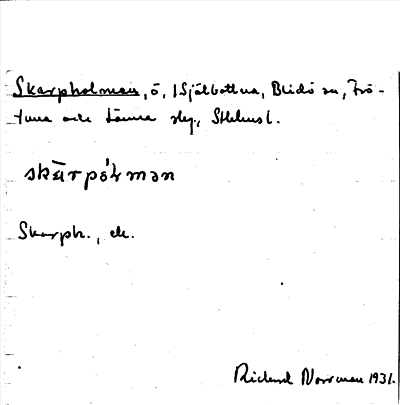 Skarpholmen, ö, i Själbottna, Blidö sn, Frö-
tuna och Länna skg., Sthlms l.
skärpóɫmən
Skarph., ek.
Rickard Norrman 1931.